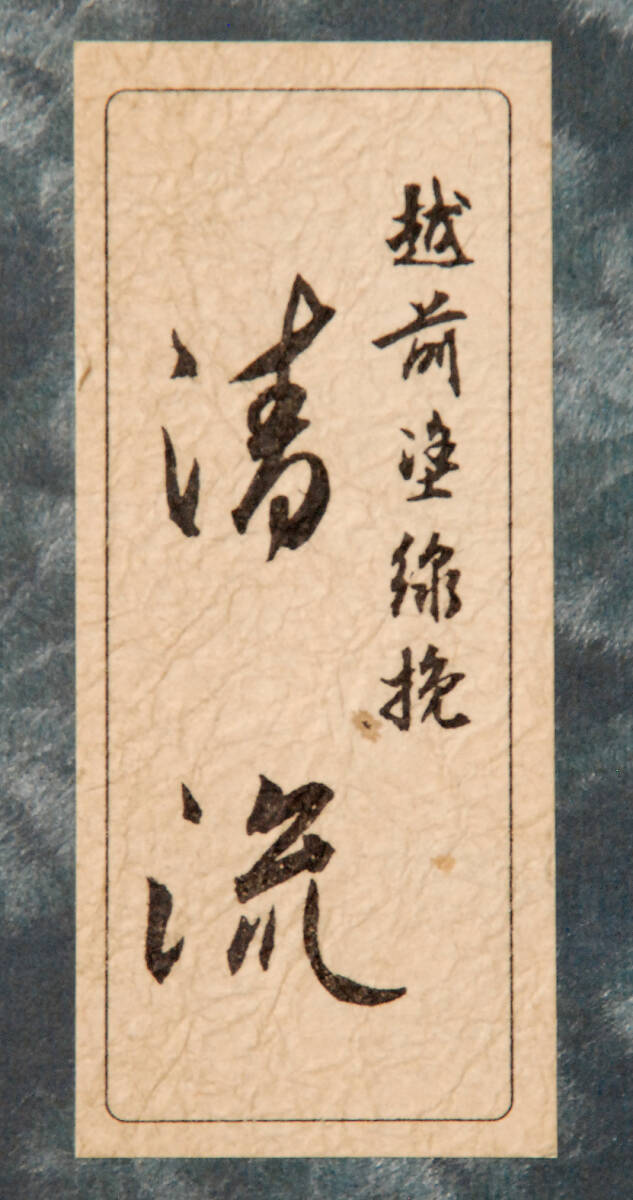 越前塗線挽
清流